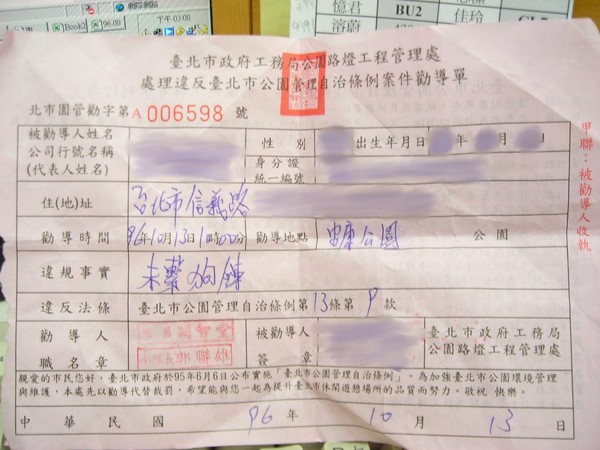 Book2
96.09
下午 03:08
憶君
BU2
佳玲
溶蔚
臺北市政府工務局公園路燈工程管理處
處理違反臺北市公園管理自治條例案件勸導單
北市園管勸字第A 006598 號
被勸導人姓名
公司行號名稱
(代表人姓名)
性別
出生年月日 年 月 日
身分證
統一編號
住(地)址 台北市信義路
勸導時間 96年10月13日1時00分 勸導地點 公園 公園
違規事實 未繫狗鍊
違反法條 臺北市公園管理自治條例第13條第9款
勸導人
職名章
被勸導人
簽章
臺北市政府工務局
公園路燈工程管理處
親愛的市民您好,臺北市政府於95年6月6日公布實施「臺北市公園管理自治條例」,為加強臺北市公園環境管理
與維護,本處先以勸導代替裁罰,希望能與您一起為提升臺北市休閒遊憩場所的品質而努力。敬祝 快樂。
中華民國 96 年 10 月 13 日
甲聯:被勸導人收執